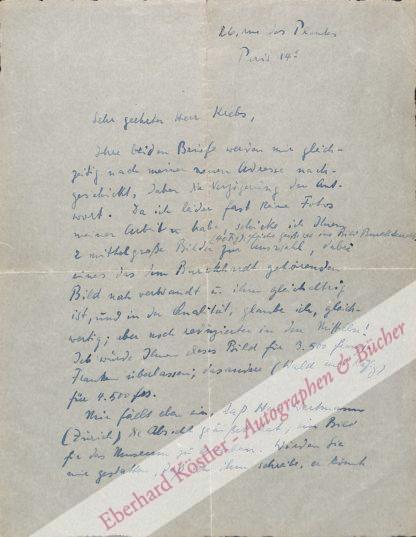 26, rue des Plantes
Paris 14e
Sehr geehrter Herr Krebs,
Ihre beiden Briefe werden mir gleich-
zeitig nach meiner neuen Adresse nach-
geschickt, daher die Verzögerung der Ant-
wort. Da ich leider fast keine Fotos
meiner Arbeiten habe, schicke ich Ihnen
2 mittelgroße Bilder zur Auswahl, dabei
eines das dem Burckhardt gehörenden
Bild nah verwandt u. ihm gleichaltrig
ist, und in der Qualität, glaube ich, gleich-
wertig; aber noch in den Mitteln!
Ich würde Ihnen dieses Bild für 3.500
Franken überlassen; das andere (Wald
für 4.500 frs.
Mir fällt eben ein, daß Herr
(Zürich) die Absicht ein Bild
für das Museum zu Würden Sie
mir gestatten, ihm schreibe, er könnte
Eberhard Köstler - Autographen & Bücher